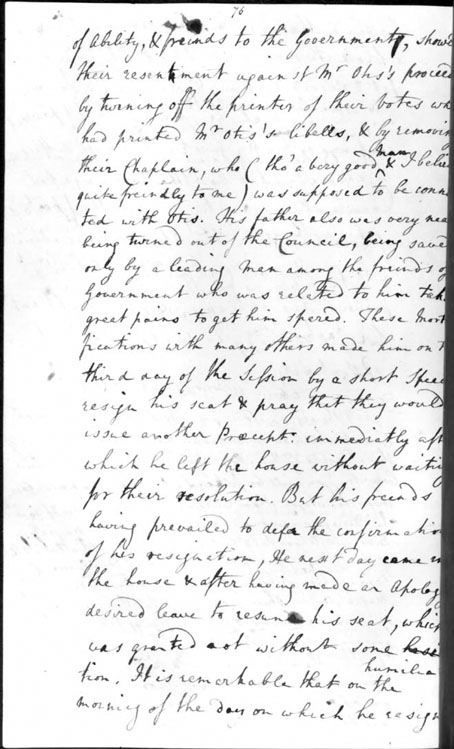 76
of Ability, & freinds to the Government, show'd
their resentment against Mr Otis's proceed
by turning off the printer of their votes wh
had printed Mr Otis's libells, & by removing
their Chaplain, who (tho' a very good man & I believ
quite freindly to me) was supposed to be conn
ted with Otis. His father also was very nea
being turned out of the Council, being saved
only by a leading man among the freinds of
Government who was related to him tak
great pains to get him spared. These Mort
fications with many others made him on t
third day of the Session by a short Speec
resign his seat & pray that they would
issue another Precept: immediatly aft
which he left the house without waitin
for their resolution. But his freends
having prevailed to defer the confirmation
of his resignation, He next day came in
the house & after having made an Apolog
desired leave to resume his seat, which
was granted not without some
humilia
tion. It is remarkable that on the
morning of the day on which he resign